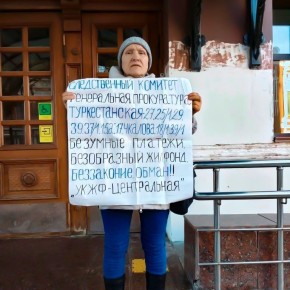 Следственный комитет
Генеральная прокуратура
Туркестанская 27,25,129
Безумные платежи,
Безобразный жил фонд
Беззаконие обман!!
"УКЖФ-Центральная"